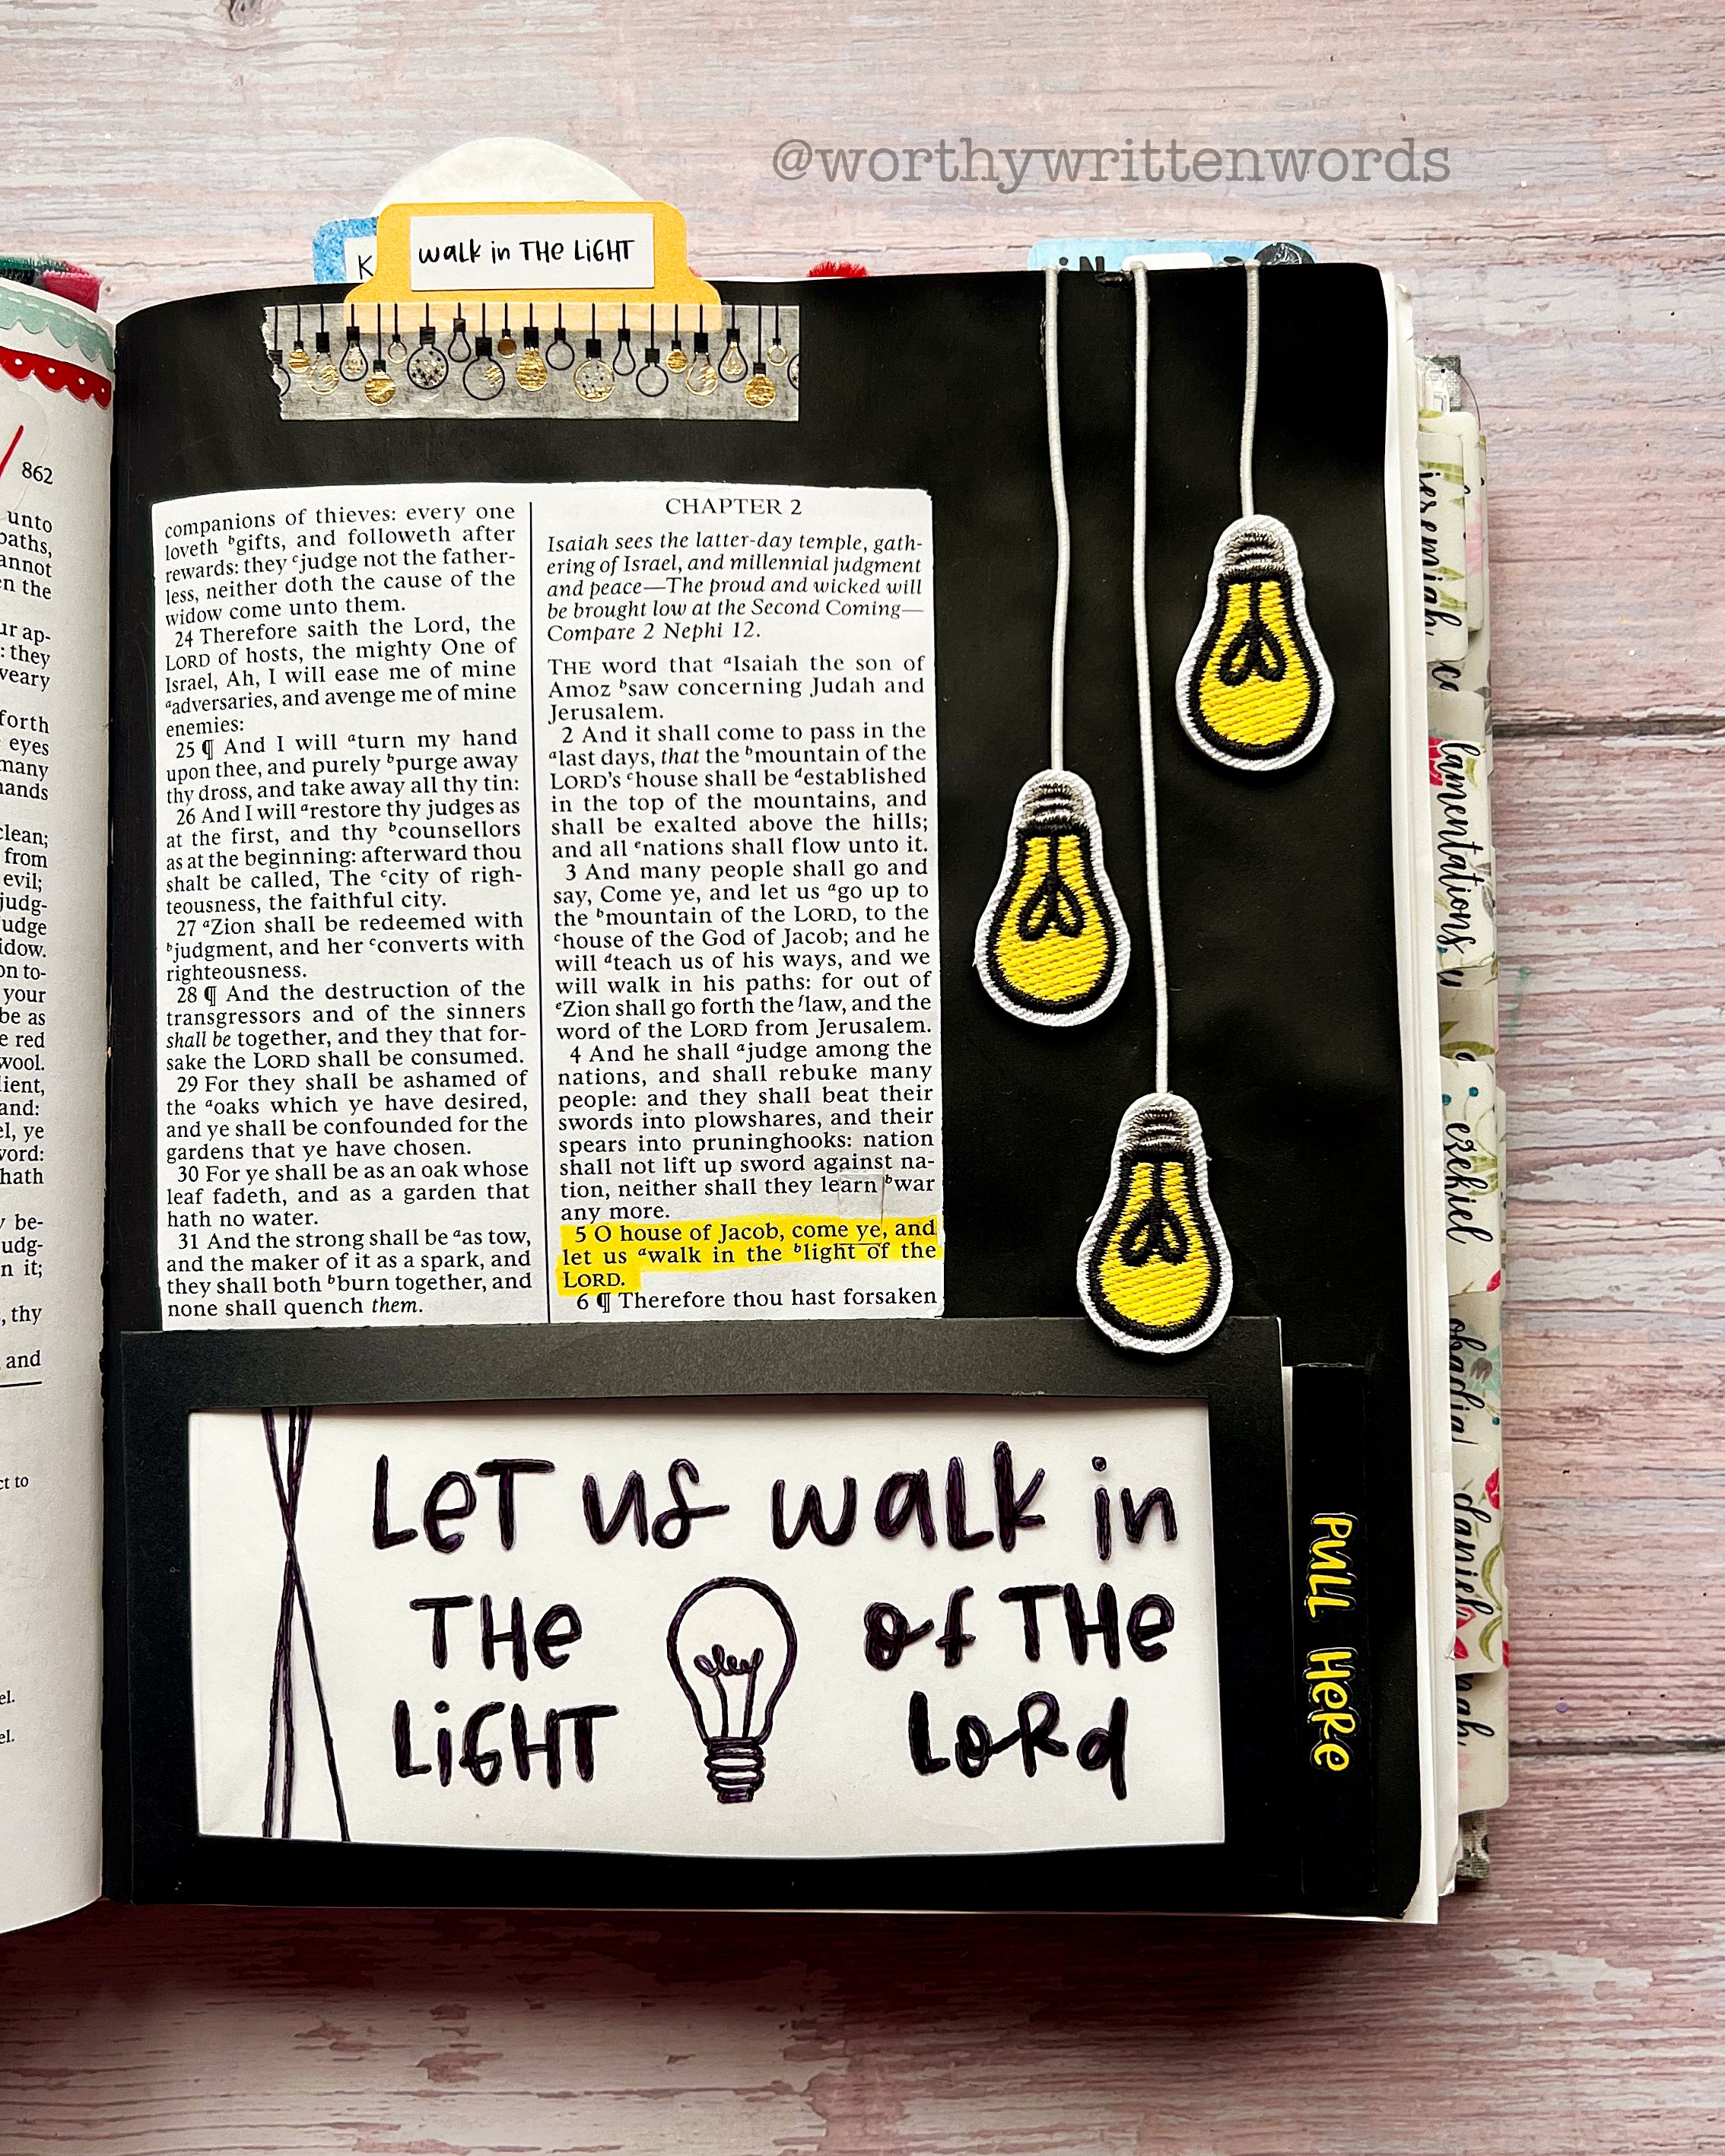 @worthywrittenwords
walk in THE LiGHT
K
iN
862
unto
paths,
annot
en the
ur ap-
: they
weary
forth
eyes
many
hands
clean;
from
evil;
judg-
udge
idow.
on to-
your
be as
e red
wool.
lient,
and:
el, ye
word:
hath
y be-
udg-
n it;
, thy
and
ct to
el.
el.
companions of thieves: every one
loveth ᵇgifts, and followeth after
rewards: they ᶜjudge not the father-
less, neither doth the cause of the
widow come unto them.
24 Therefore saith the Lord, the
LORD of hosts, the mighty One of
Israel, Ah, I will ease me of mine
ᵃadversaries, and avenge me of mine
enemies:
25 ¶ And I will ᵃturn my hand
upon thee, and purely ᵇpurge away
thy dross, and take away all thy tin:
26 And I will ᵃrestore thy judges as
at the first, and thy ᵇcounsellors
as at the beginning: afterward thou
shalt be called, The ᶜcity of righ-
teousness, the faithful city.
27 ᵃZion shall be redeemed with
ᵇjudgment, and her ᶜconverts with
righteousness.
28 ¶ And the destruction of the
transgressors and of the sinners
shall be together, and they that for-
sake the LORD shall be consumed.
29 For they shall be ashamed of
the ᵃoaks which ye have desired,
and ye shall be confounded for the
gardens that ye have chosen.
30 For ye shall be as an oak whose
leaf fadeth, and as a garden that
hath no water.
31 And the strong shall be ᵃas tow,
and the maker of it as a spark, and
they shall both ᵇburn together, and
none shall quench them.
CHAPTER 2
Isaiah sees the latter-day temple, gath-
ering of Israel, and millennial judgment
and peace—The proud and wicked will
be brought low at the Second Coming—
Compare 2 Nephi 12.
THE word that ᵃIsaiah the son of
Amoz ᵇsaw concerning Judah and
Jerusalem.
2 And it shall come to pass in the
ᵃlast days, that the ᵇmountain of the
LORD'S ᶜhouse shall be ᵈestablished
in the top of the mountains, and
shall be exalted above the hills;
and all ᵉnations shall flow unto it.
3 And many people shall go and
say, Come ye, and let us ᵃgo up to
the ᵇmountain of the LORD, to the
ᶜhouse of the God of Jacob; and he
will ᵈteach us of his ways, and we
will walk in his paths: for out of
ᵉZion shall go forth the ᶠlaw, and the
word of the LORD from Jerusalem.
4 And he shall ᵃjudge among the
nations, and shall rebuke many
people: and they shall beat their
swords into plowshares, and their
spears into pruninghooks: nation
shall not lift up sword against na-
tion, neither shall they learn ᵇwar
any more.
5 O house of Jacob, come ye, and
let us ᵃwalk in the ᵇlight of the
LORD.
6 ¶ Therefore thou hast forsaken
LeT us walk in
THe of THe
LiGHT LoRd
PULL HeRe
jeremiah
lamentations
ezekiel
obadia
daniel